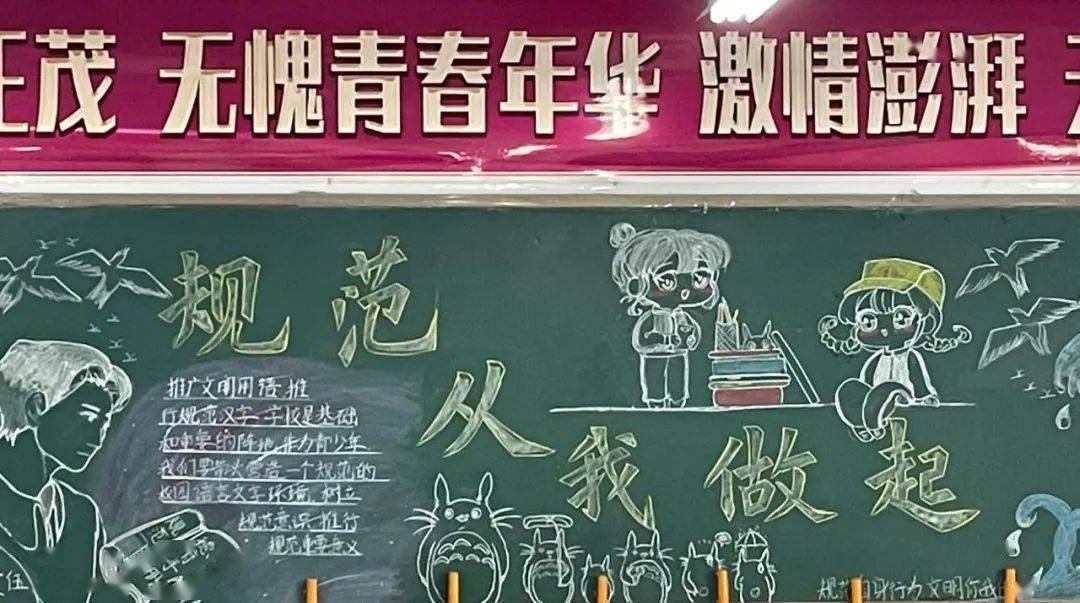 正茂 无愧青春年华 激情澎湃
规范
从我做起
推广文明用语推
行规范汉字 学校是基础
和重要的阵地 作为青少年
我们要带头营造一个规范的
校园语言文字环境 树立
规范意识 推行
规范
意义
伍
规范自身行为 文明你我